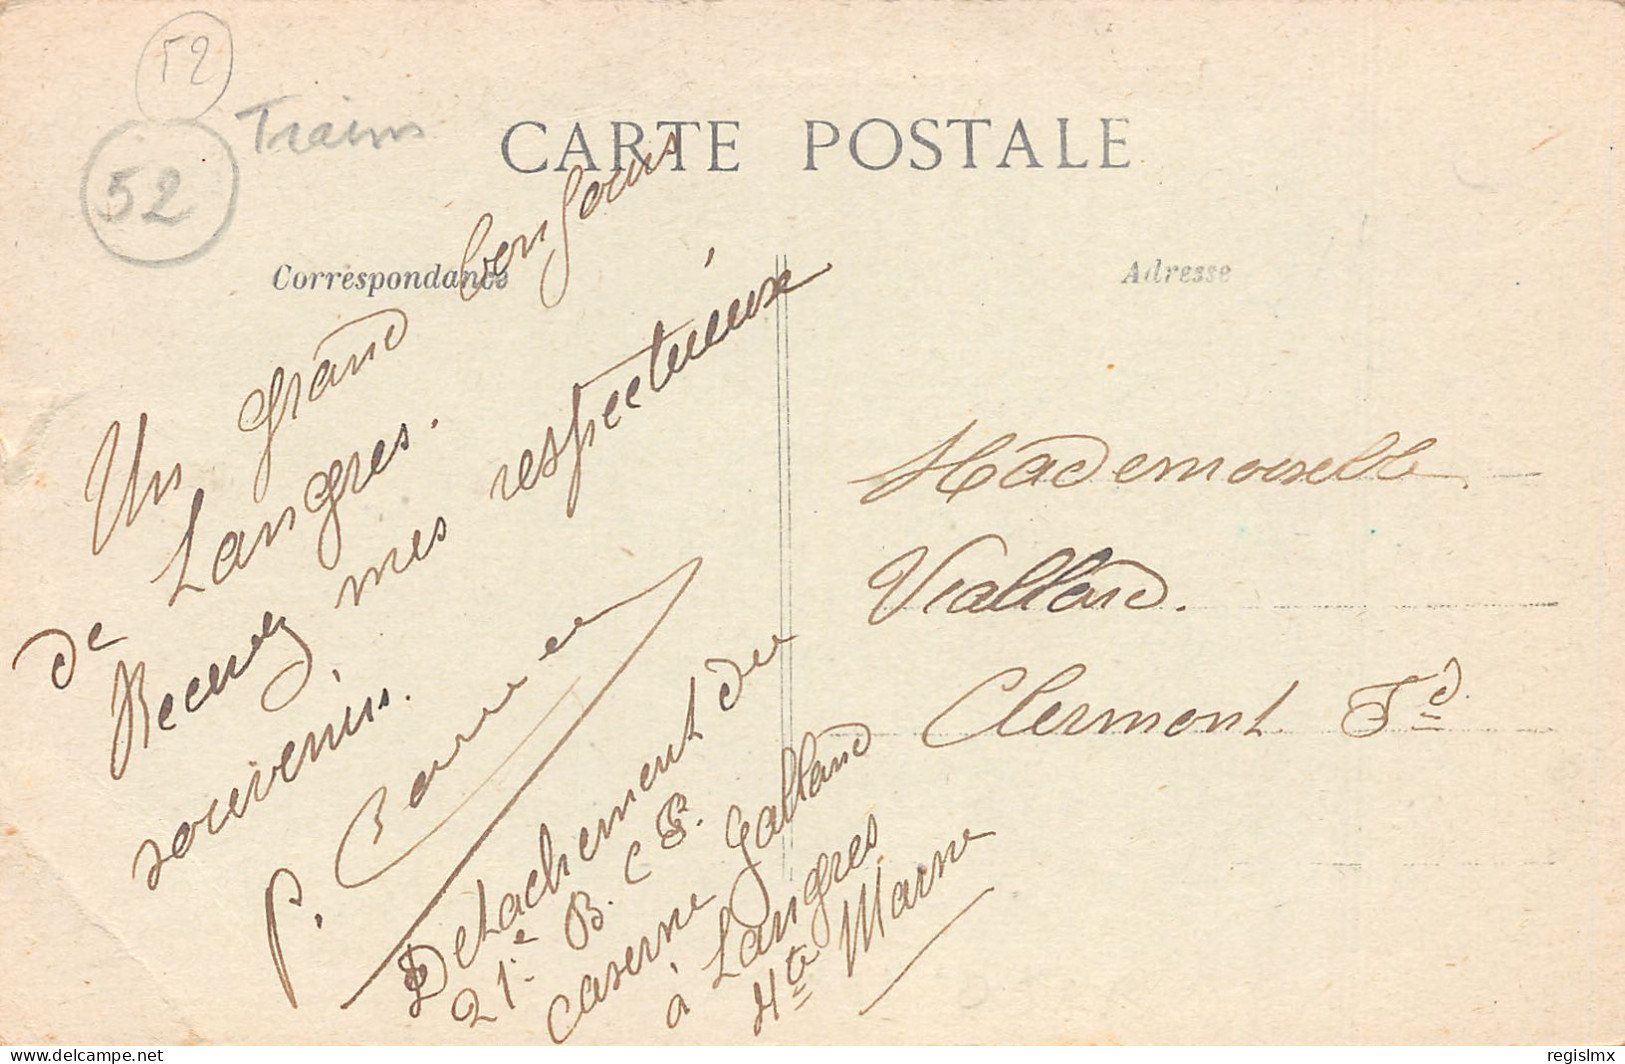 52
52
Trains
CARTE POSTALE
Correspondance
Adresse
Un grand bonjour
de Langres.
Recevez mes respectueux
souvenirs.
P.
Détachement du
21.e B. C P.
caserne Galland
à Langres
Hte Marne
Mademoiselle
Viallard.
Clermont Fd.
delcampe.net
regislmx